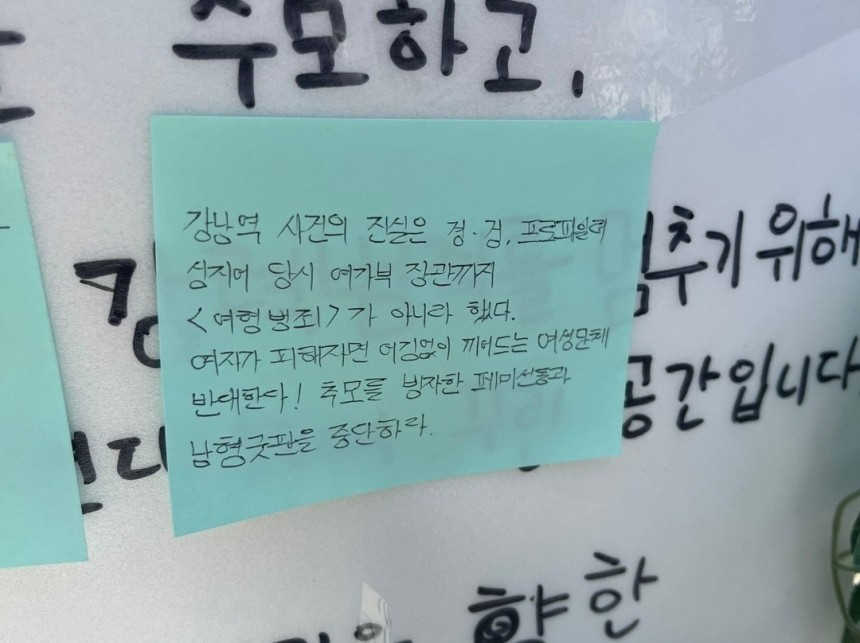 추모하고,
강남역 사건의 진실은 경·검, 프로파일러
심지어 당시 여가부 장관까지
<여혐범죄>가 아니라 했다.
여자가 피해자면 어김없이 끼어드는 여성단체
반대한다! 추모를 빙자한 페미선동과
남혐굿판을 중단하라.
추기 위해
공간입니다
향한